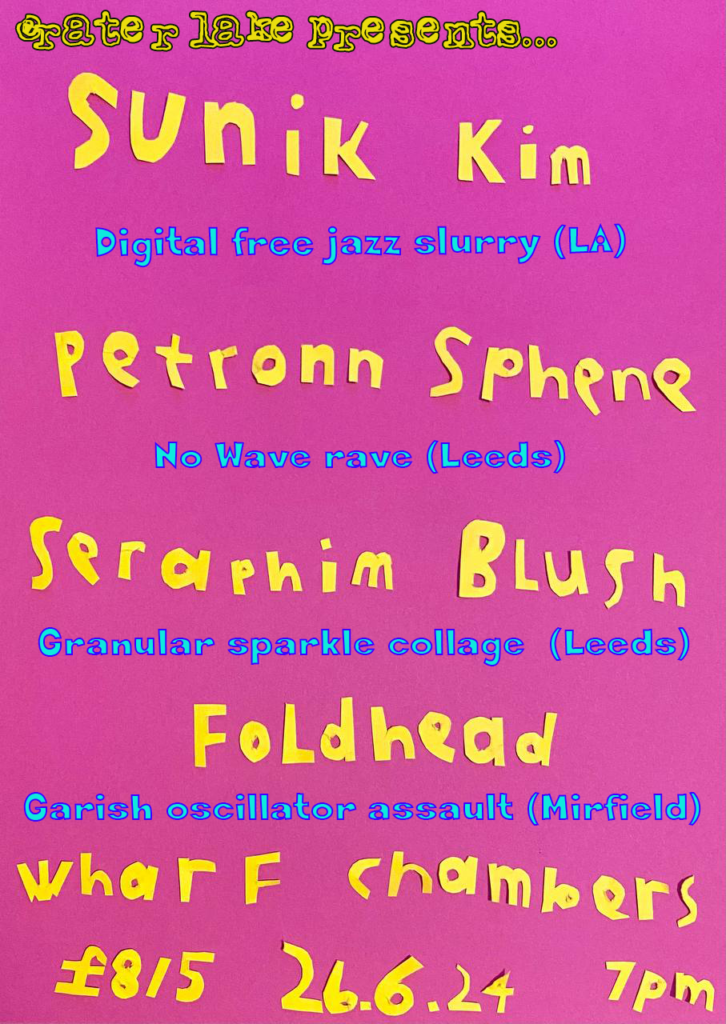 crater lake presents...
Sunik Kim
Digital free jazz slurry (LA)
Petronn Sphene
No Wave rave (Leeds)
Seraphim Blush
Granular sparkle collage (Leeds)
Foldhead
Garish oscillator assault (Mirfield)
Wharf Chambers
£8/5 26.6.24 7pm